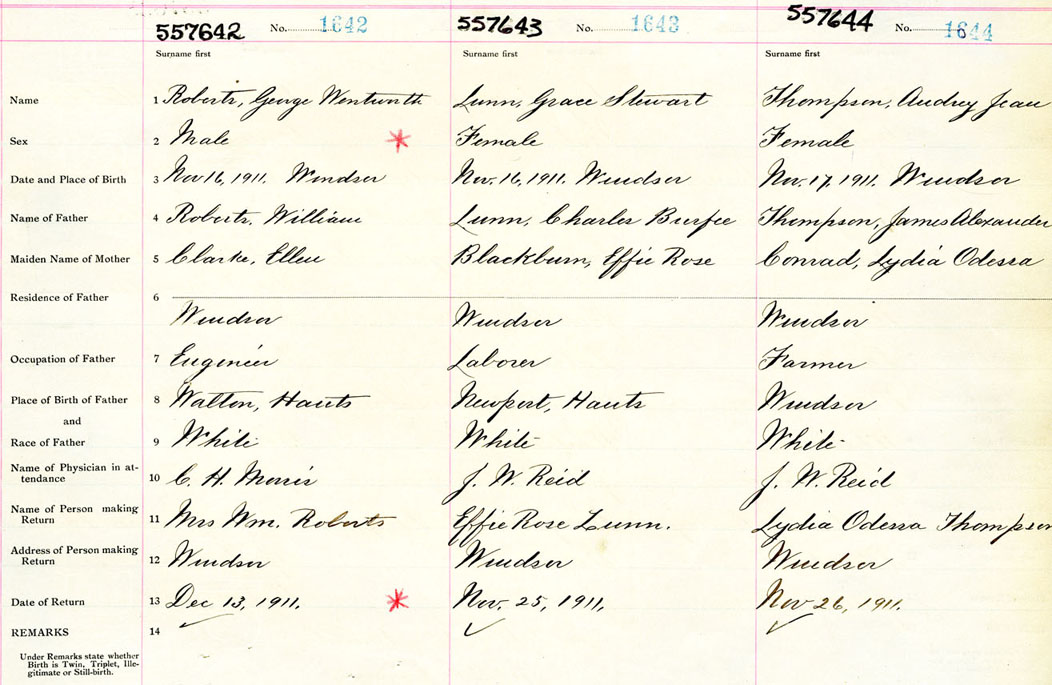 557642 No. 1642 557643 No. 1643 557644 No. 1644
Surname first Surname first Surname first
Name 1 Roberts, George Wentworth Lunn, Grace Stewart Thompson, Audrey Jean
Sex 2 Male * Female Female
Date and Place of Birth 3 Nov 16, 1911. Windsor Nov. 16, 1911. Windsor Nov. 17, 1911. Windsor
Name of Father 4 Roberts, William Lunn, Charles Burfee Thompson, James Alexander
Maiden Name of Mother 5 Clarke, Ellen Blackburn, Effie Rose Conrad, Lydia Odessa
Residence of Father 6
Windsor Windsor Windsor
Occupation of Father 7 Engineer Laborer Farmer
Place of Birth of Father 8 Walton, Hants Newport, Hants Windsor
and
Race of Father 9 White White White
Name of Physician in at-
tendance 10 C. H. Morris J. W. Reid J. W. Reid
Name of Person making
Return 11 Mrs Wm. Roberts Effie Rose Lunn. Lydia Odessa Thompson
Address of Person making
Return 12 Windsor Windsor Windsor
Date of Return 13 Dec 13, 1911. * Nov. 25, 1911. Nov 26, 1911.
REMARKS 14
Under Remarks state whether
Birth is Twin, Triplet, Ille-
gitimate or Still-birth.